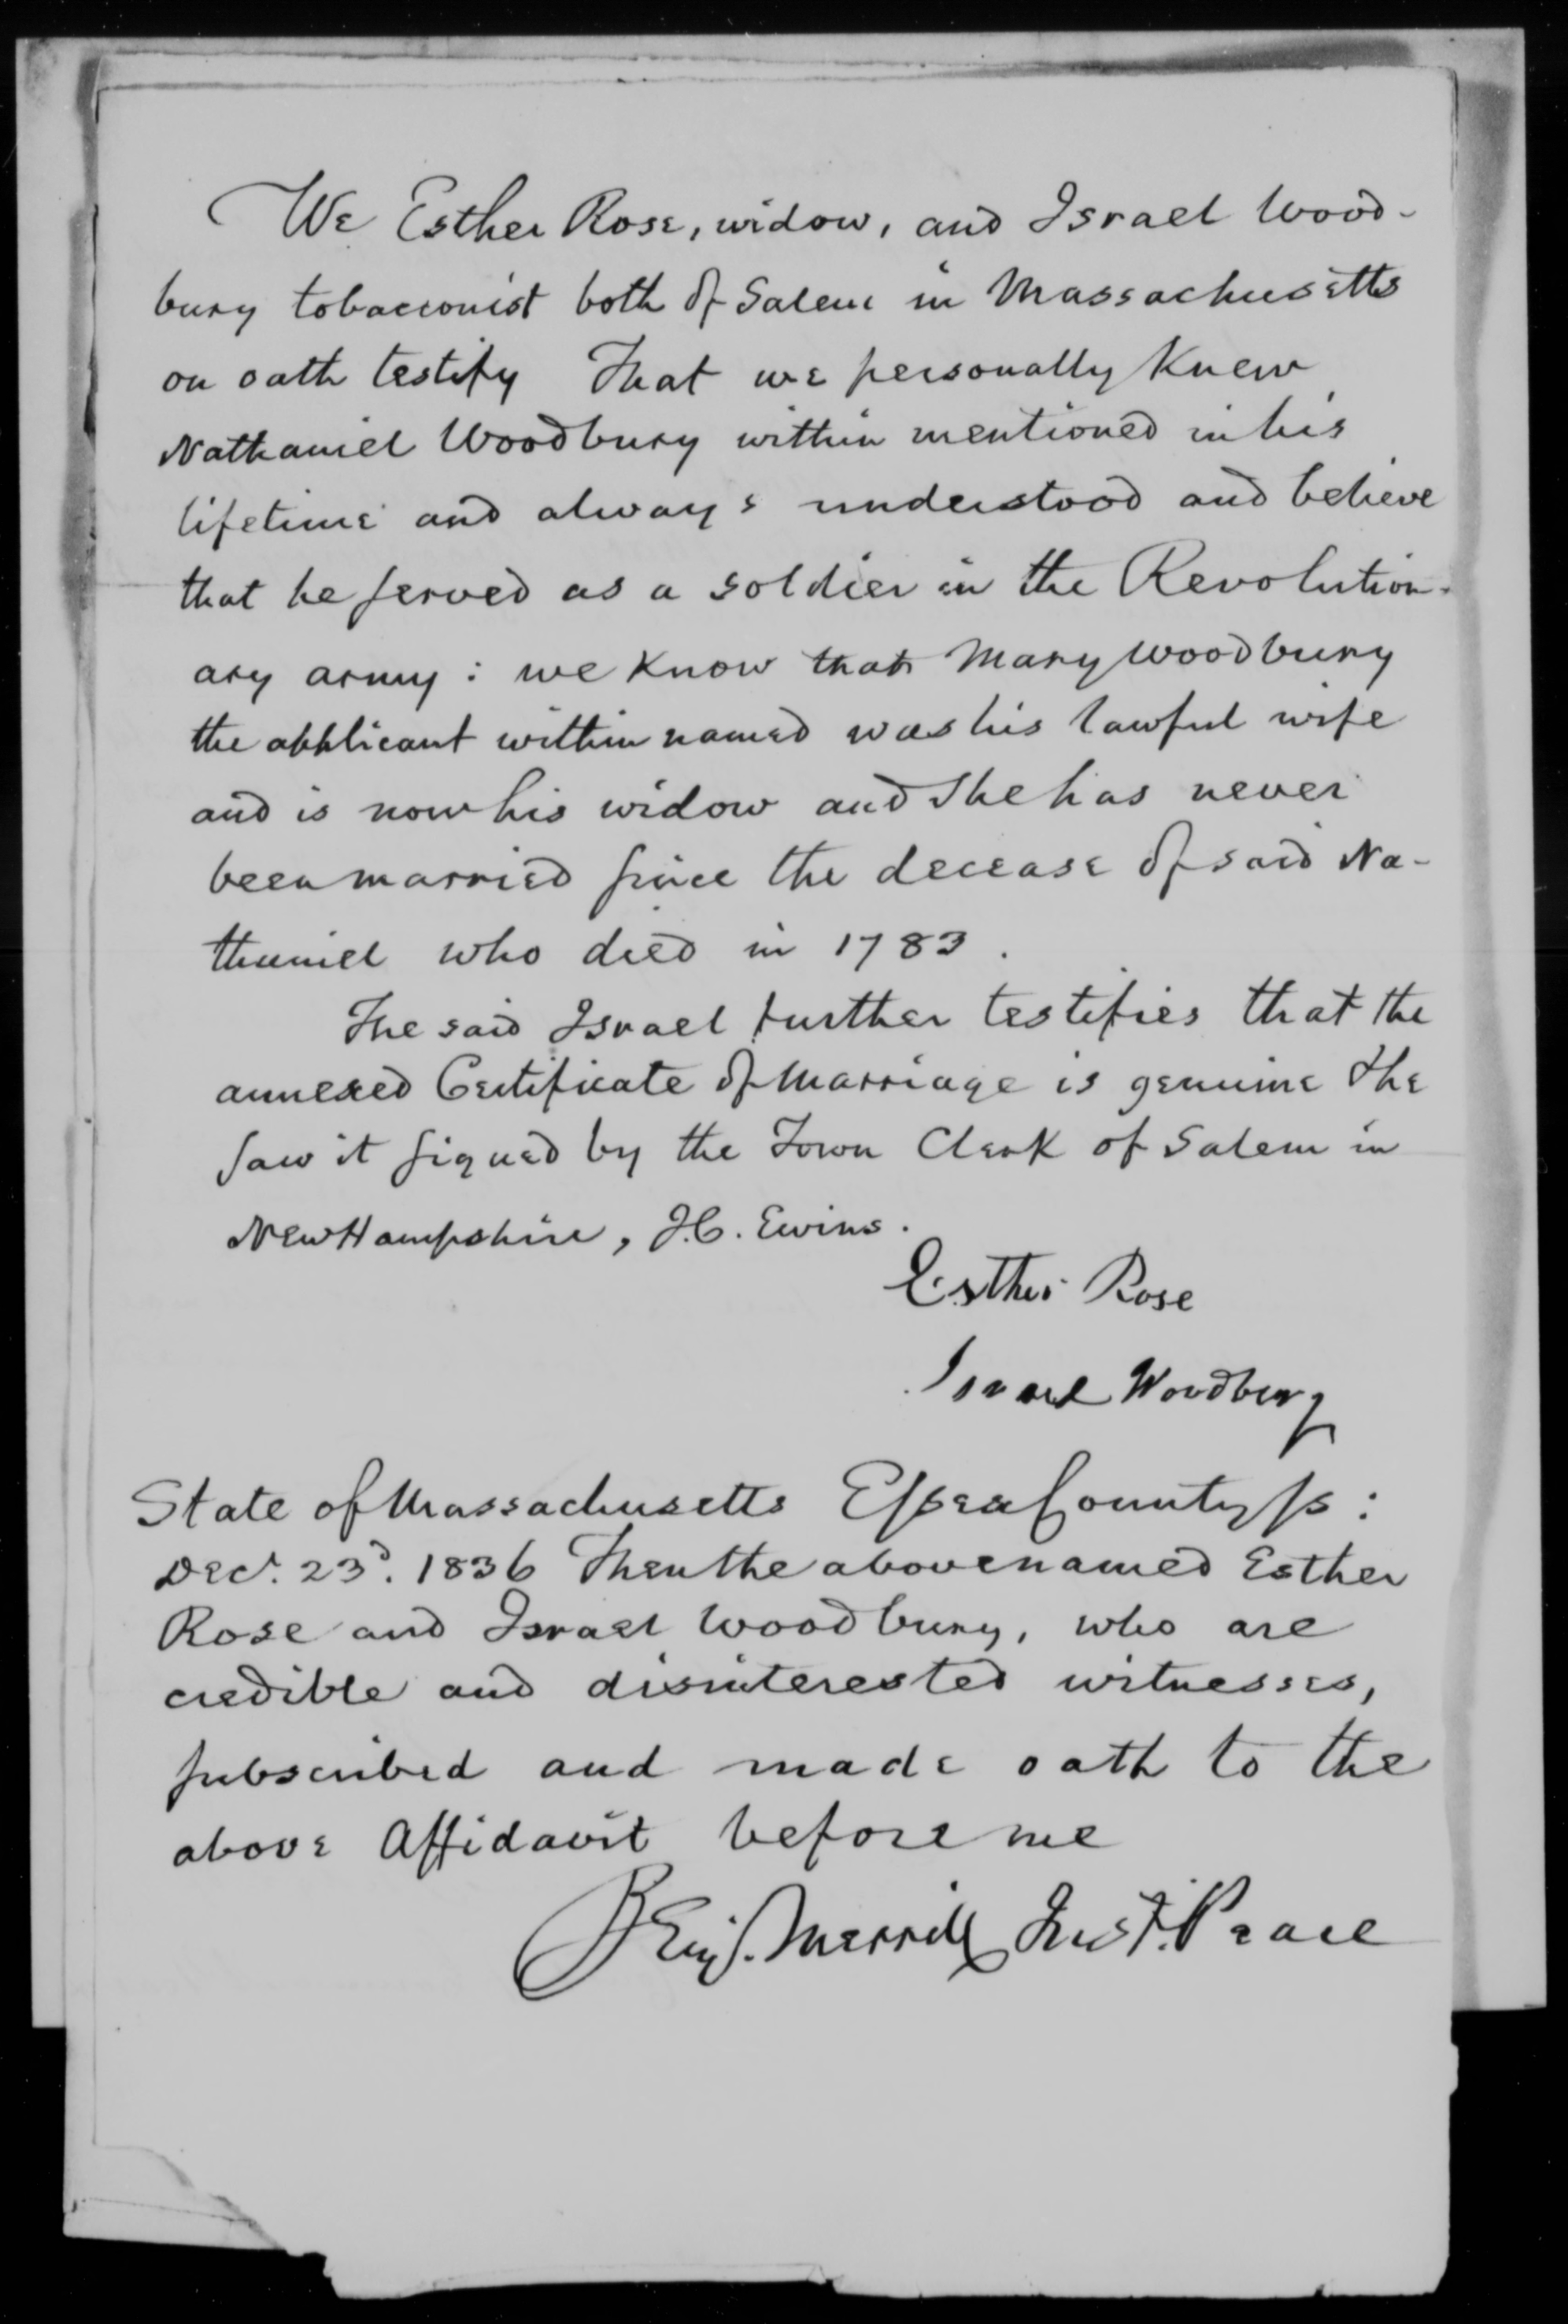 We Esther Rose, widow, and Israel Wood-
bury tobacconist both of Salem in Massachusetts
on oath testify That we personally knew
Nathaniel Woodbury within mentioned in his
lifetime and always understood and believe
that he served as a soldier in the Revolution-
ary army: we know that Mary Woodbury
the applicant within named was his lawful wife
and is now his widow and she has never
been married since the decease of said Na-
thaniel who died in 1783.
The said Israel further testifies that the
annexed Certificate of Marriage is genuine & he
saw it signed by the Town Clerk of Salem in
New Hampshire, J.C. Ewins.
Esther Rose
Israel Woodbury
State of Massachusetts Essex County ss:
Dec. 23d. 1836 Then the above named Esther
Rose and Israel Woodbury, who are
credible and disinterested witnesses,
subscribed and made oath to the
above Affidavit before me
Benj. Merrill Just. Peace